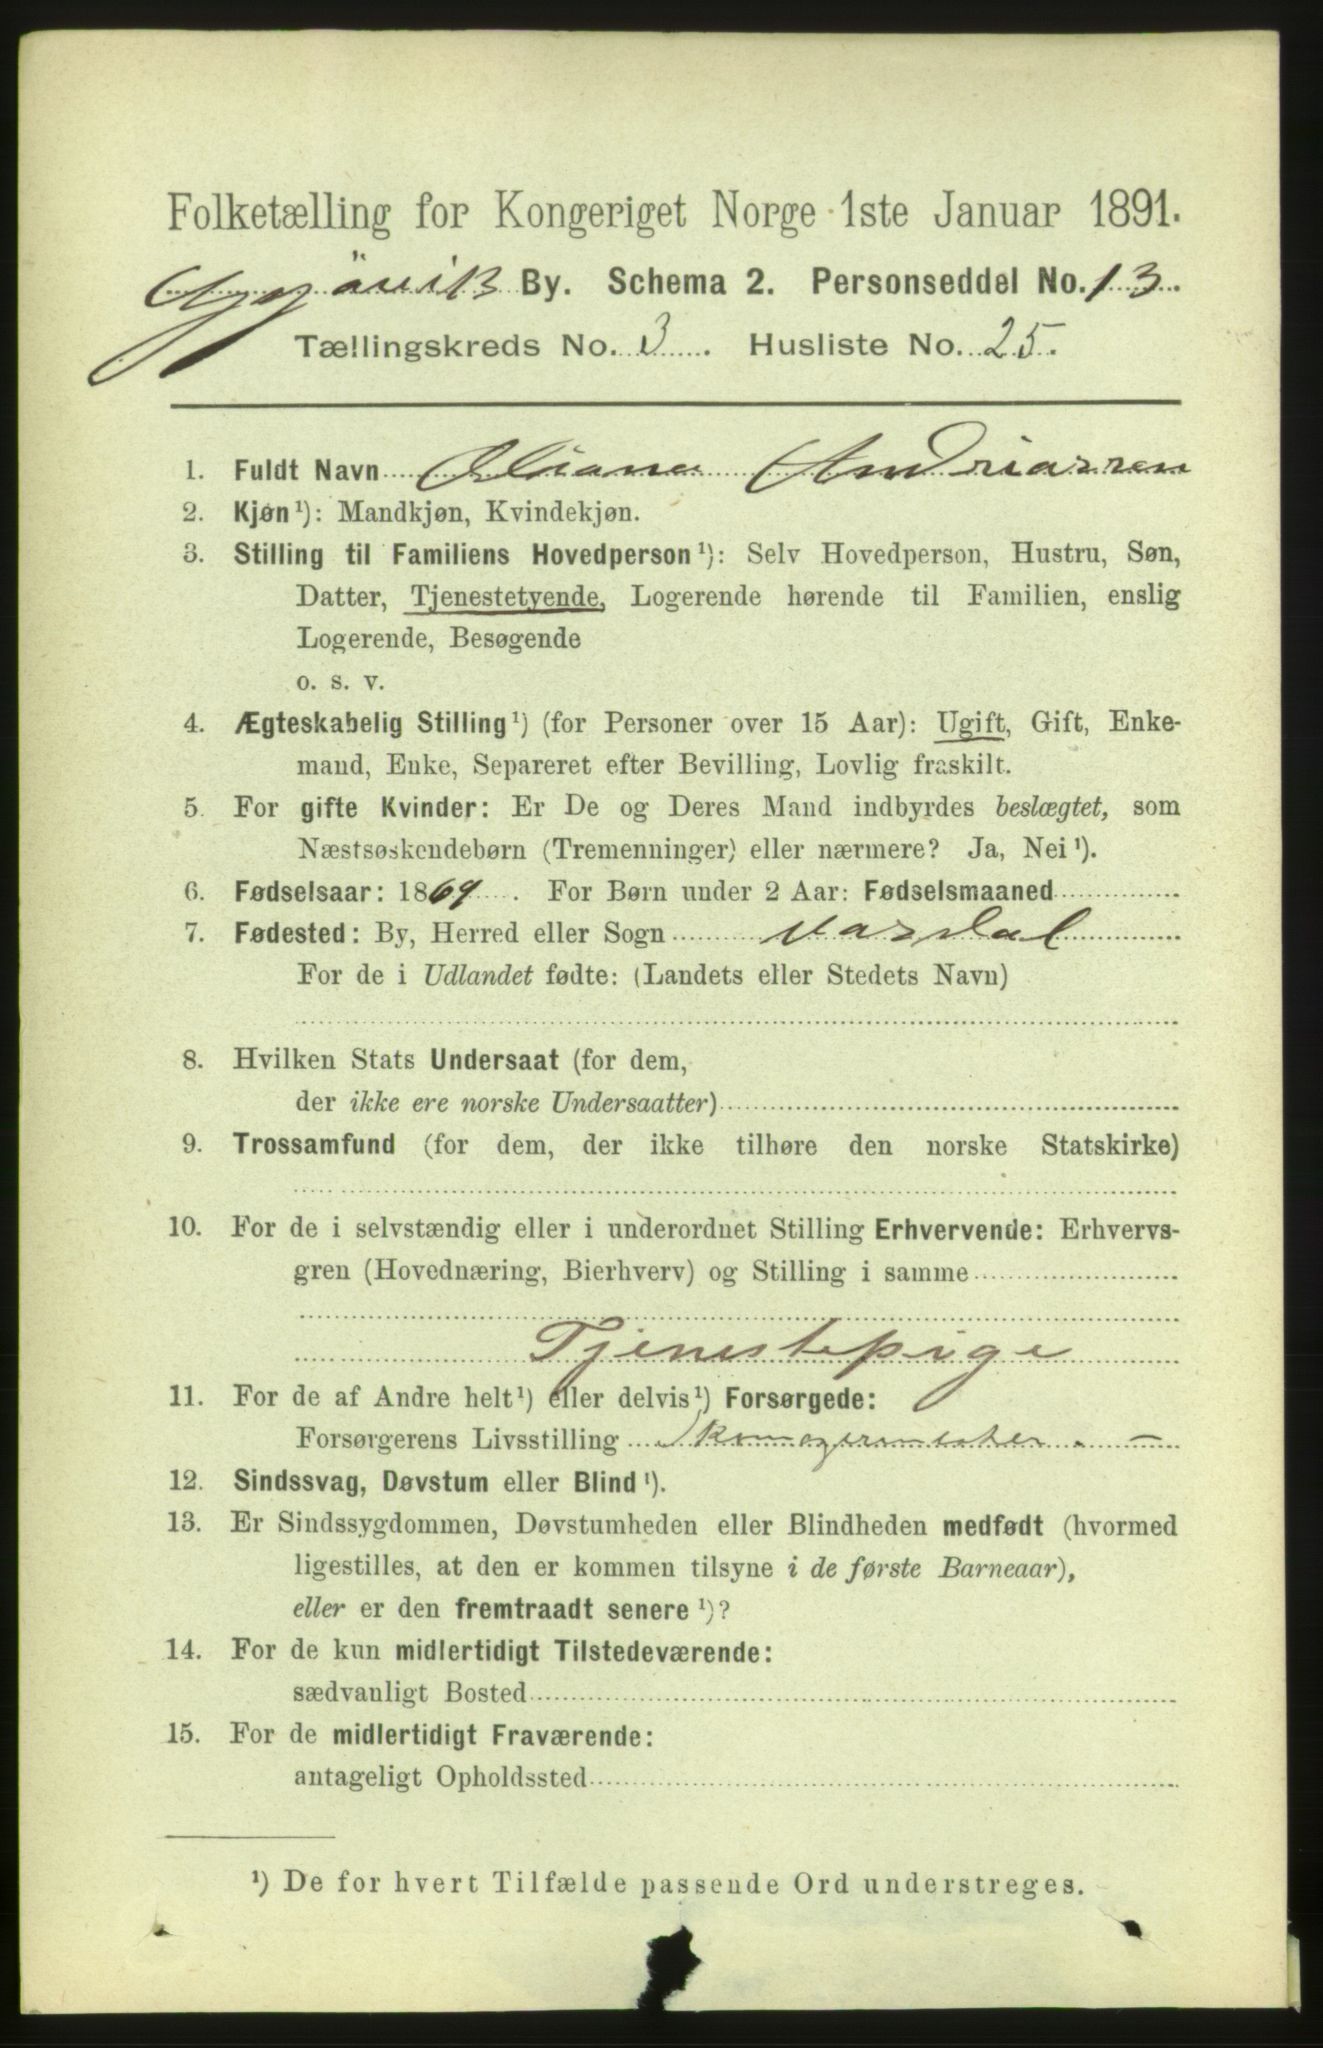 Folketælling for Kongeriget Norge 1ste Januar 1891.
Gjövik By. Schema 2. Personseddel No. 13.
Tællingskreds No. 3. Husliste No. 25.
1. Fuldt Navn Oliana Andriassen
2. Kjøn ¹): Mandkjøn, Kvindekjøn.
3. Stilling til Familiens Hovedperson ¹): Selv Hovedperson, Hustru, Søn,
Datter, Tjenestetyende, Logerende hørende til Familien, enslig
Logerende, Besøgende
o. s. v.
4. Ægteskabelig Stilling ¹) (for Personer over 15 Aar): Ugift, Gift, Enke-
mand, Enke, Separeret efter Bevilling, Lovlig fraskilt.
5. For gifte Kvinder: Er De og Deres Mand indbyrdes beslægtet, som
Næstsøskendebørn (Tremenninger) eller nærmere? Ja, Nei ¹).
6. Fødselsaar: 1869. For Børn under 2 Aar: Fødselsmaaned
7. Fødested: By, Herred eller Sogn Vardal
For de i Udlandet fødte: (Landets eller Stedets Navn)
8. Hvilken Stats Undersaat (for dem,
der ikke ere norske Undersaatter)
9. Trossamfund (for dem, der ikke tilhøre den norske Statskirke)
10. For de i selvstændig eller i underordnet Stilling Erhvervende: Erhvervs-
gren (Hovednæring, Bierhverv) og Stilling i samme
Tjenestepige
11. For de af Andre helt ¹) eller delvis ¹) Forsørgede:
Forsørgerens Livsstilling Skomagermester. —
12. Sindssvag, Døvstum eller Blind ¹).
13. Er Sindssygdommen, Døvstumheden eller Blindheden medfødt (hvormed
ligestilles, at den er kommen tilsyne i de første Barneaar),
eller er den fremtraadt senere ¹)?
14. For de kun midlertidigt Tilstedeværende:
sædvanligt Bosted
15. For de midlertidigt Fraværende:
antageligt Opholdssted
¹) De for hvert Tilfælde passende Ord understreges.